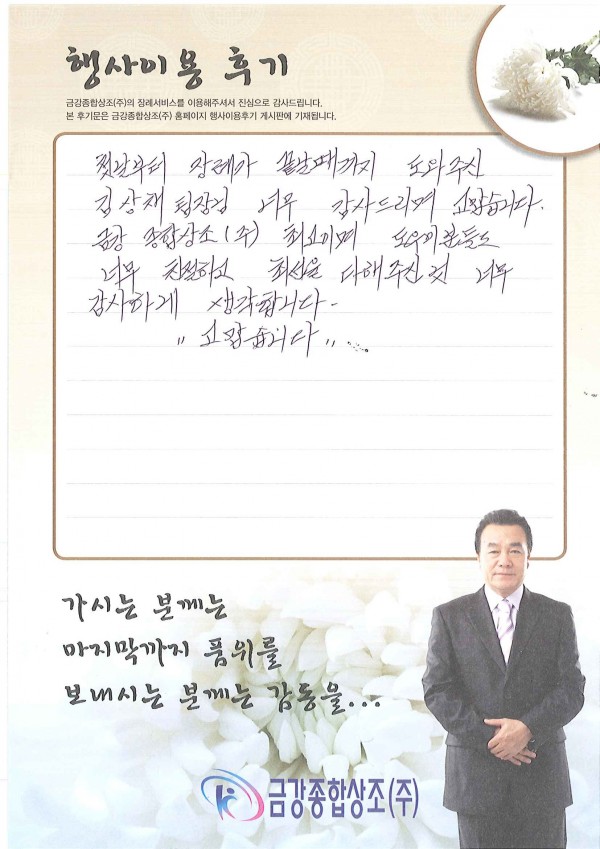 행사이용 후기
금강종합상조(주)의 장례서비스를 이용해주셔서 진심으로 감사드립니다.
본 후기문은 금강종합상조(주) 홈페이지 행사이용후기 게시판에 기재됩니다.
첫날부터 장례가 끝날때까지 도와주신
김상재 팀장님 너무 감사드리며 고맙습니다.
금강 종합상조(주) 최고이며 도우미분들도
너무 친절하고 최선을 다해주신것 너무
감사하게 생각합니다.
"고맙습니다"...
가시는 분께는
마지막까지 품위를
보내시는 분께는 감동을...
금강종합상조(주)